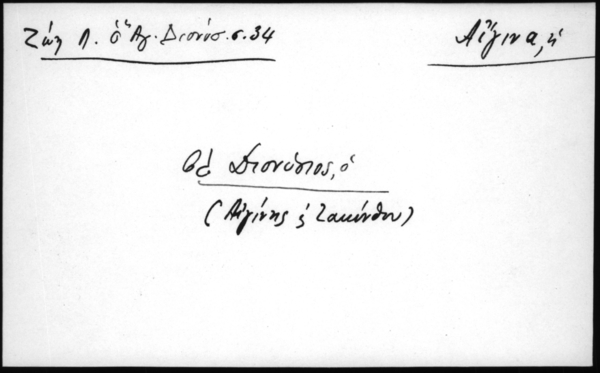 Ζώη Λ. ὁ Ἅγ. Διονύσ. σ. 34
Αἴγινα, ἡ
βλ Διονύσιος, ὁ
(Αἰγίνης ἐ Ζακύνθου)